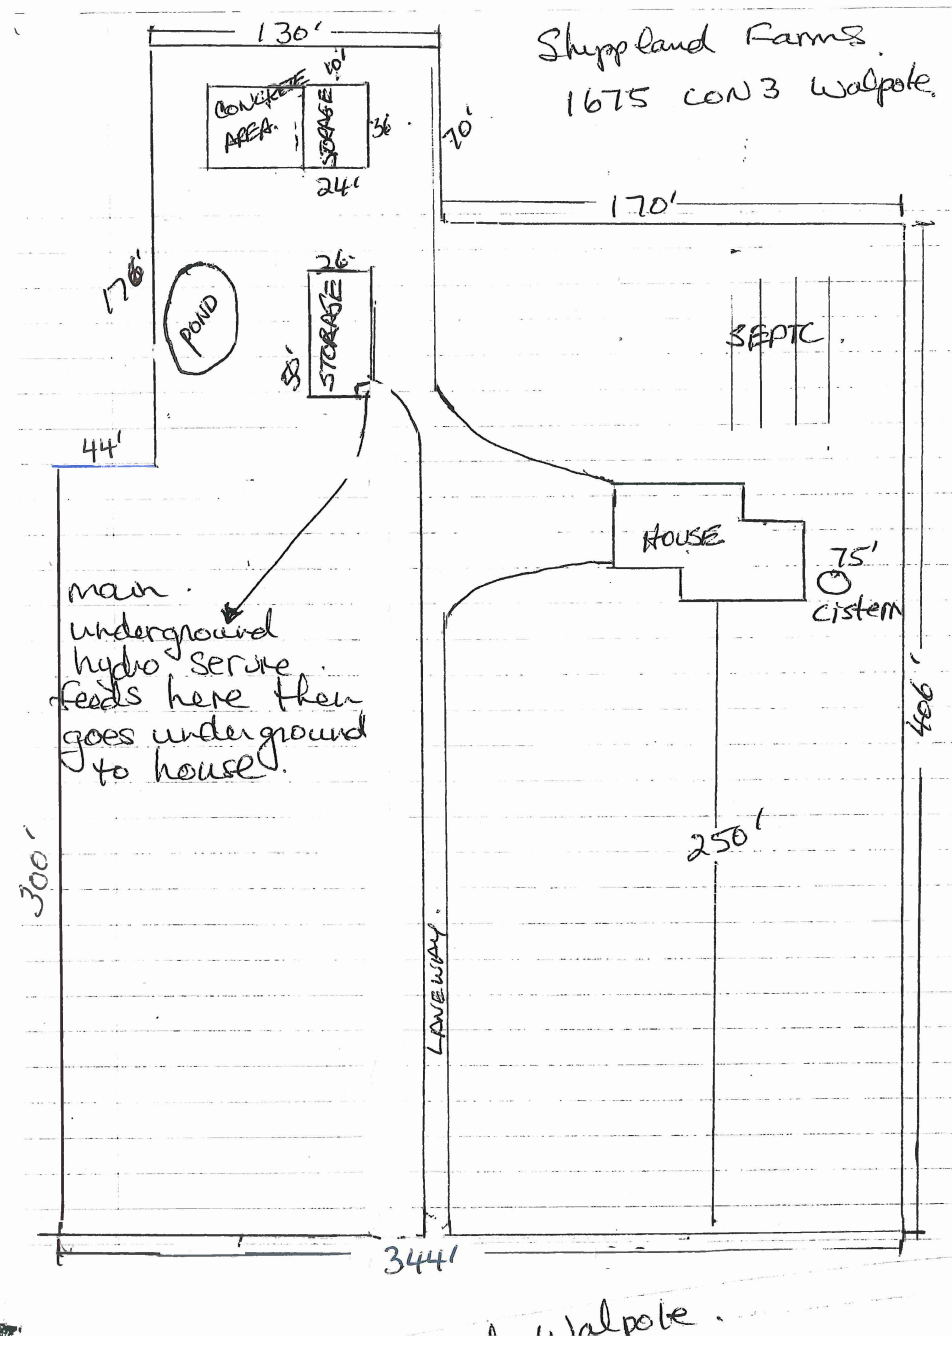 130'
Shyppland Farms.
1675 CON 3 Walpole.
50'
CONCRETE
AREA.
STORAGE
36
24'
70'
170'
176'
POND
26
STORAGE
50'
SEPTC.
44'
HOUSE
75'
cistern
main
underground
hydro servire
feeds here then
goes underground
to house.
406'
250'
300'
LANEWAY.
344'
Walpole.